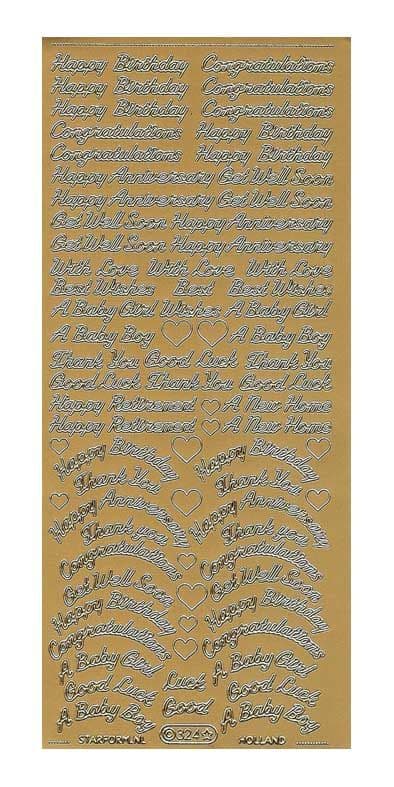 Happy Birthday Congratulations
Happy Birthday Congratulations
Happy Birthday Congratulations
Congratulations Happy Birthday
Congratulations Happy Birthday
Happy Anniversary Get Well Soon
Happy Anniversary Get Well Soon
Get Well Soon Happy Anniversary
Get Well Soon Happy Anniversary
With Love With Love With Love
Best Wishes Best Best Wishes
A Baby Girl Wishes A Baby Girl
A Baby Boy A Baby Boy
Thank You Good Luck Thank You
Good Luck Thank You Good Luck
Happy Retirement A New Home
Happy Retirement A New Home
Happy Birthday Happy Birthday
Thank You Thank You
Happy Anniversary Happy Anniversary
Thank you Thank you
Congratulations Congratulations
Get Well Soon Get Well Soon
Happy Birthday Happy Birthday
Congratulations Congratulations
A Baby Girl A Baby Girl
Good Luck Luck Good Luck
A Baby Boy Good A Baby Boy
STARFORM.NL ©324☆ HOLLAND